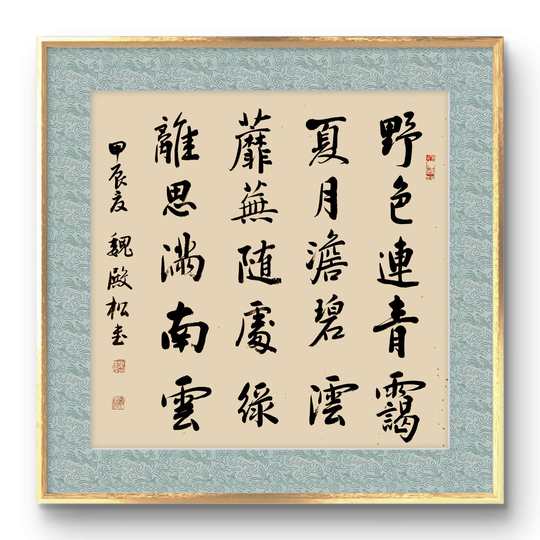 野色連青靄
夏月澹碧澐
蘼蕪随處綠
離思滿南雲
甲辰夏 魏殿松書